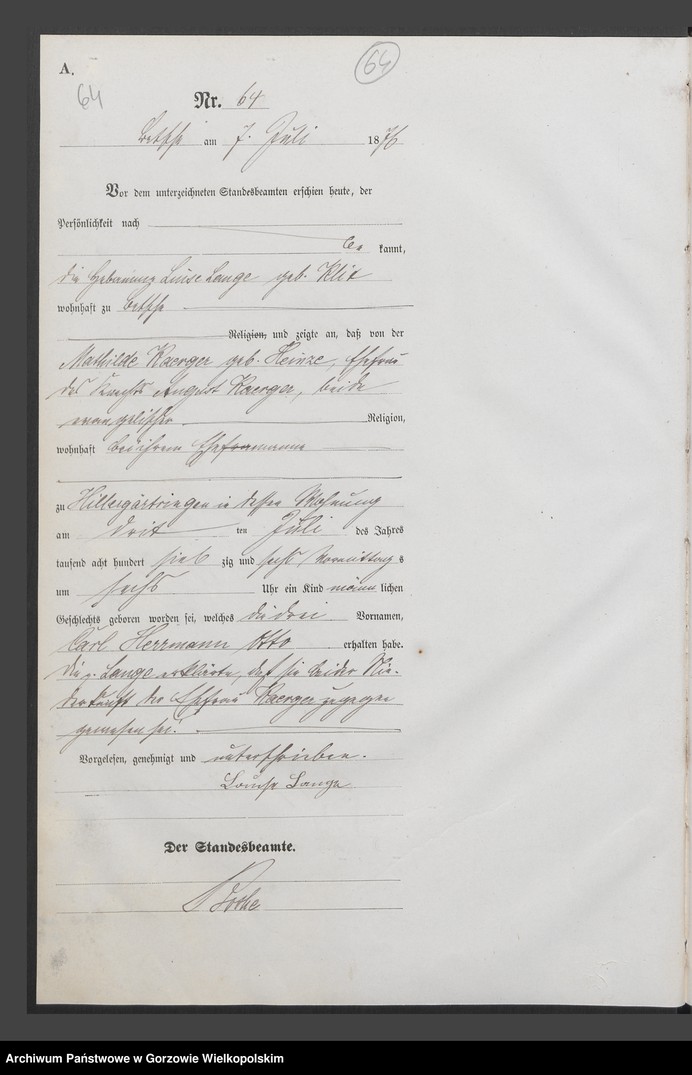 A.
64
64
Nr. 64
Betsche am 7. Juli 1876
Vor dem unterzeichneten Standesbeamten erschien heute, der
Persönlichkeit nach
be kannt,
die Hebamme Luise Lange geb. Klix
wohnhaft zu Betsche
Religion, und zeigte an, daß von der
Mathilde Kaerger geb. Heinze, Ehefrau
des Knechts August Kaerger, beide
evangelischer Religion,
wohnhaft bei ihrem Eheframanne
zu Hillergärtringen in dessen Wohnung
am drit ten Juli des Jahres
tausend acht hundert sieb zig und sechs Vormittag s
um sechs Uhr ein Kind männ lichen
Geschlechts geboren worden sei, welches die drei Vornamen,
Carl Herrmann Otto erhalten habe.
Die p. Lange erklärte, daß sie bei der Nie-
derkunft der Ehefrau Kaerger zugegen
gewesen sei.
Vorgelesen, genehmigt und unterschrieben.
Louise Lange
Der Standesbeamte.
Archiwum Państwowe w Gorzowie Wielkopolskim